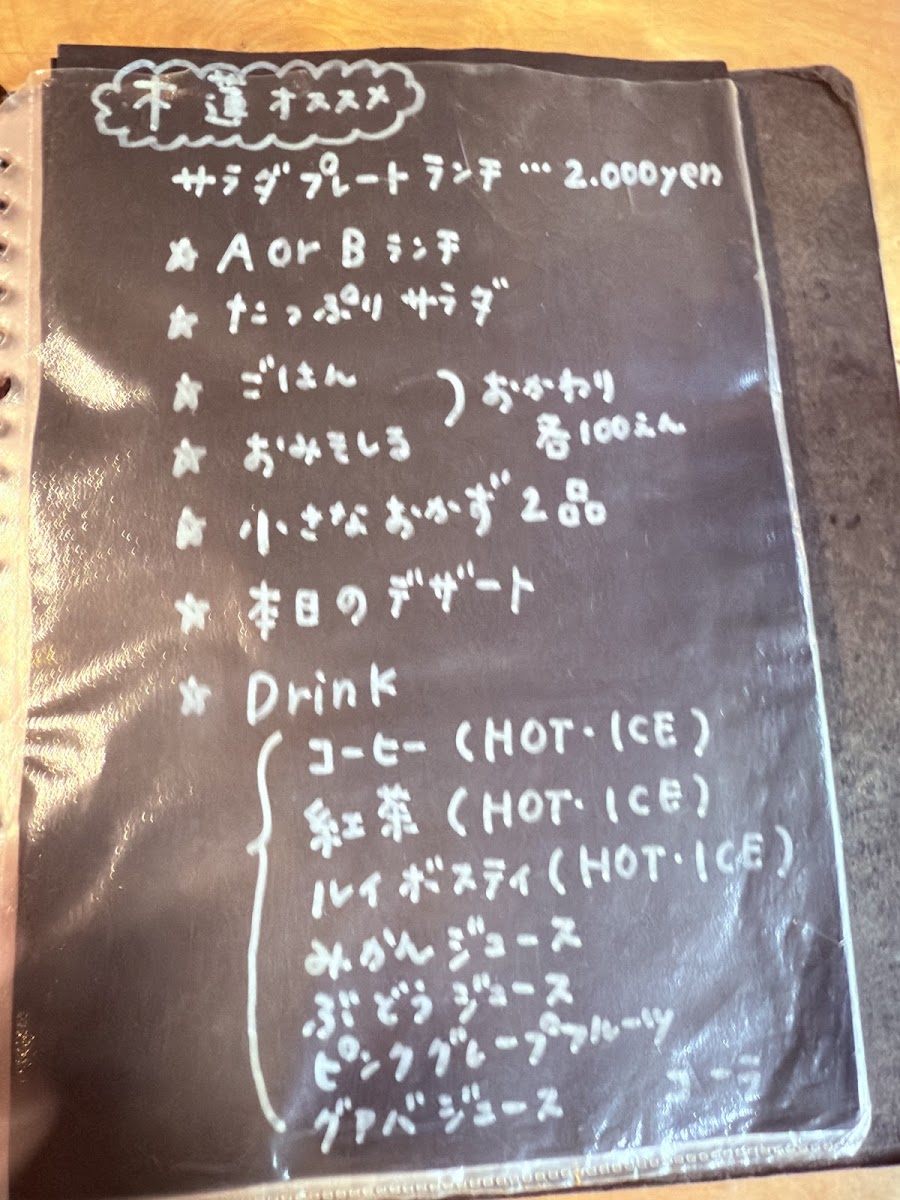 木蓮オススメ
サラダプレートランチ…2.000yen
☆ A or B ランチ
☆ たっぷりサラダ
☆ ごはん
☆ おみそしる
) おかわり
各100えん
☆ 小さなおかず2品
☆ 本日のデザート
☆ Drink
コーヒー (HOT・ICE)
紅茶 (HOT・ICE)
ルイボスティ (HOT・ICE)
みかんジュース
ぶどうジュース
ピンクグレープフルーツ
グァバジュース コーラ